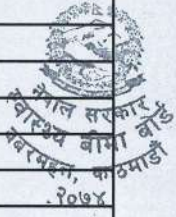 नेपाल सरकार
स्वास्थ्य बीमा बोर्ड
बबरमहल, काठमाडौं
.२०७४